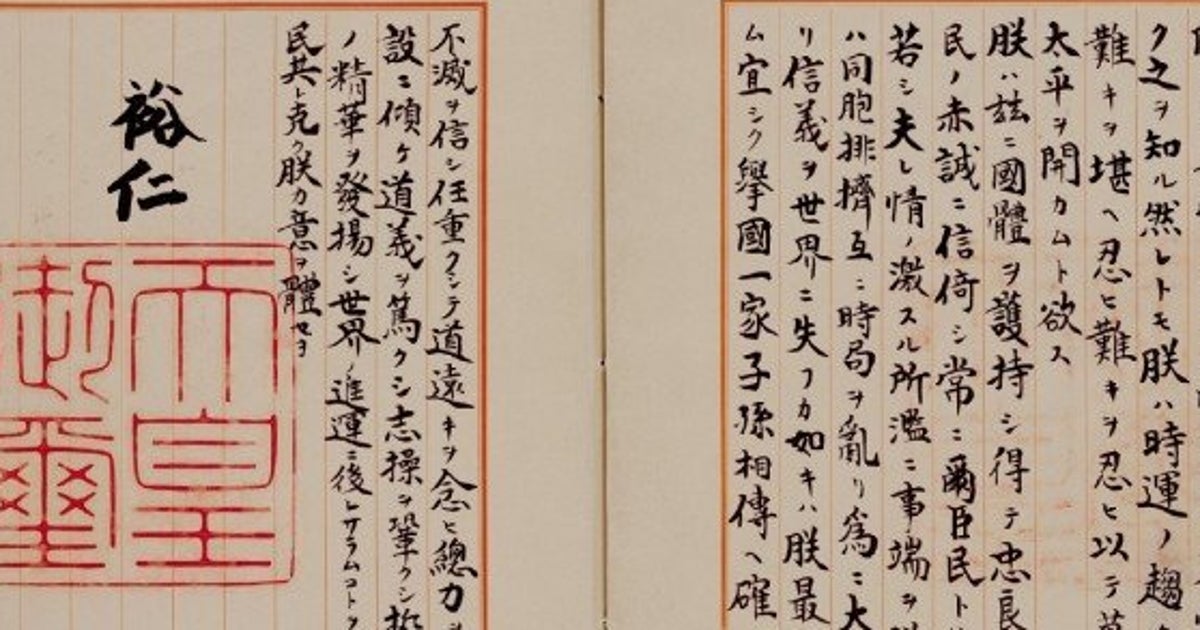 ク之ヲ知ル然レトモ朕ハ時運ノ趨
難キヲ堪ヘ忍ヒ難キヲ忍ヒ以テ萬
太平ヲ開カムト欲ス
朕ハ玆ニ國體ヲ護持シ得テ忠良
民ノ赤誠ニ信倚シ常ニ爾臣民ト
若シ夫レ情ノ激スル所濫ニ事端ヲ
ハ同胞排擠互ニ時局ヲ亂リ爲ニ大
リ信義ヲ世界ニ失フカ如キハ朕最
ム宜シク擧國一家子孫相傳ヘ確
不滅ヲ信シ任重クシテ道遠キヲ念ヒ總力ヲ
設ニ傾ケ道義ヲ篤クシ志操ヲ鞏クシ誓
ノ精華ヲ發揚シ世界ノ進運ニ後レサラムコトヲ
民其レ克ク朕カ意ヲ體セヨ
裕仁
天皇
御璽